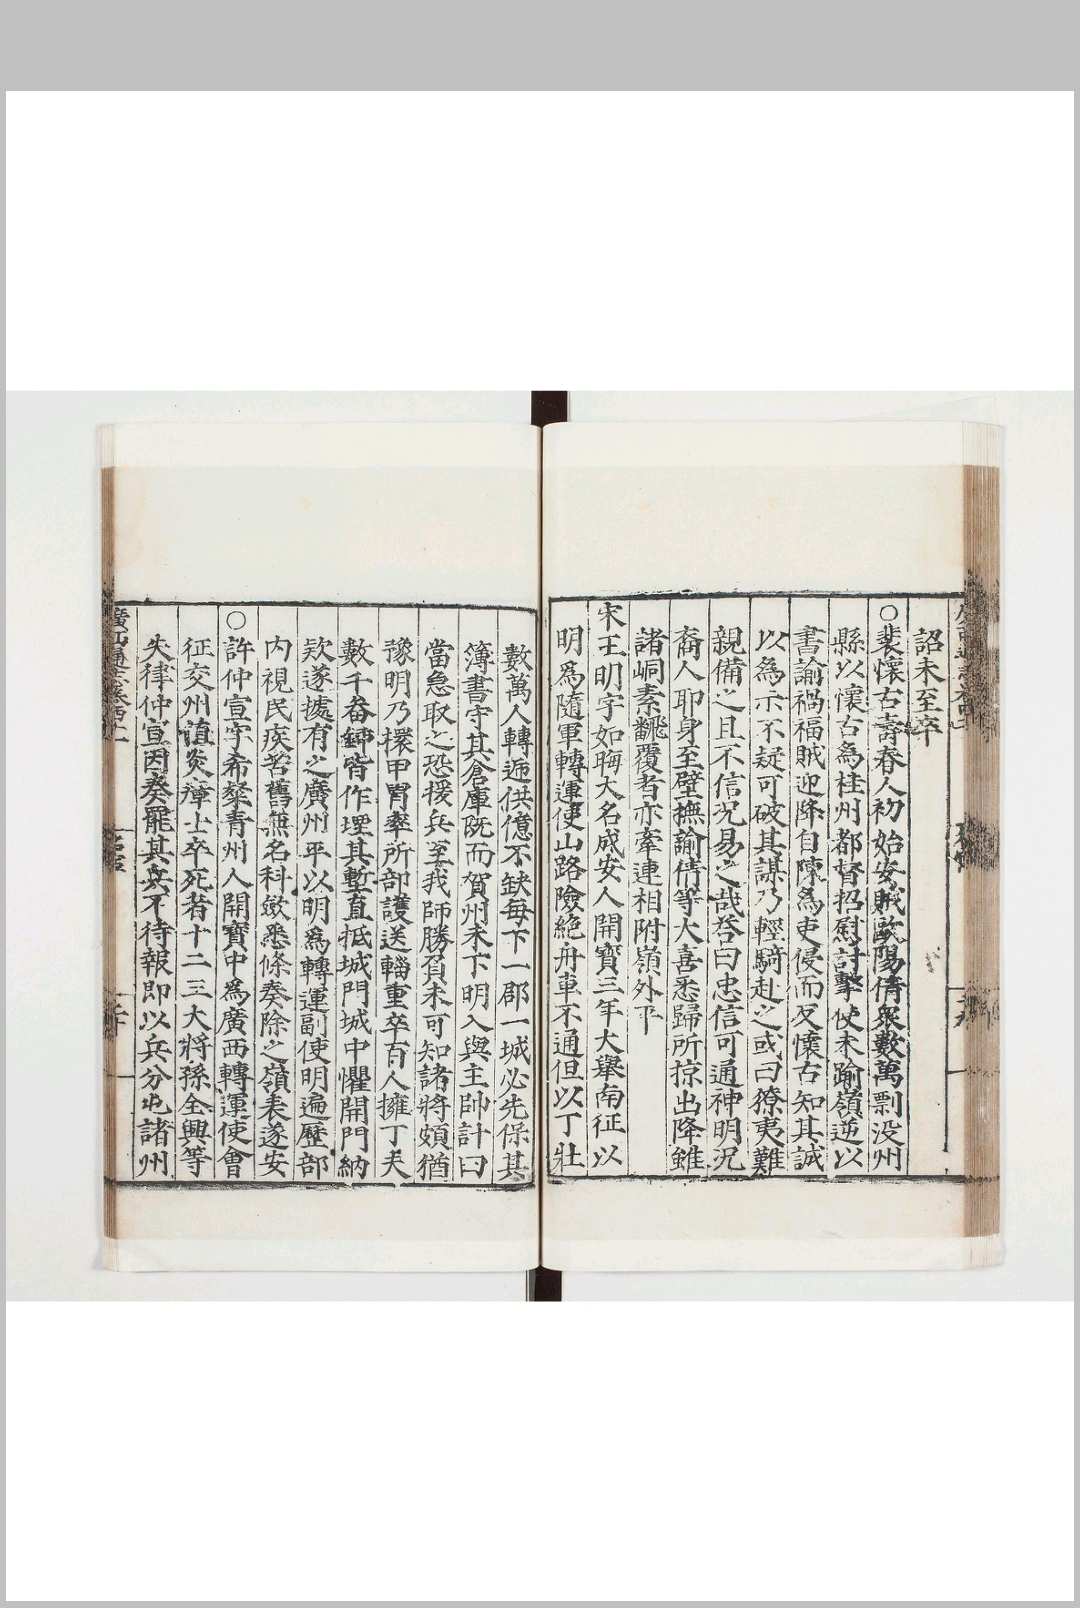 詔未至卒
○裴懷古壽春人初始安賊歐陽倩衆數萬剽没州
縣以懷古爲桂州都督招慰討擊使未踰嶺逆以
書諭禍福賊迎降自陳爲吏侵而反懷古知其誠
以爲示不疑可破其謀乃輕騎赴之或曰獠夷難
親備之且不信况易之哉荅曰忠信可通神明况
裔人耶身至壁撫諭倩等大喜悉歸所掠出降雖
諸峒素飜覆者亦牽連相附嶺外平
宋王明字如晦大名成安人開寶三年大舉南征以
明爲隨軍轉運使山路險絶舟車不通但以丁壯
數萬人轉逓供億不缺毎下一郡一城必先保其
簿書守其倉庫旣而賀州未下明入與主帥計曰
當急取之恐援兵至我師勝負未可知諸將頗猶
豫明乃擐甲胄率所部護送輜重卒百人擁丁夫
數千畚鍤皆作堙其塹直抵城門城中懼開門納
欵遂據有之廣州平以明爲轉運副使明遍歷部
内視民疾苦舊無名科斂悉條奏除之嶺表遂安
○許仲宣字希粲青州人開寶中爲廣西轉運使會
征交州值炎瘴士卒死者十二三大將孫全興等
失律仲宣因奏罷其兵不待報即以兵分屯諸州
廣西通志卷四十一
名宦
二十